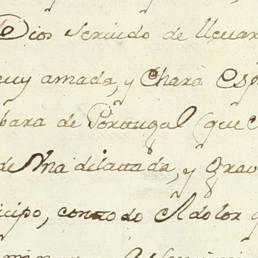 Dios servido de llevar
muy amada, y Chara Esp
bara de Portugal (que
de Una dilatada, y grav
cipo, con todo el dolor q